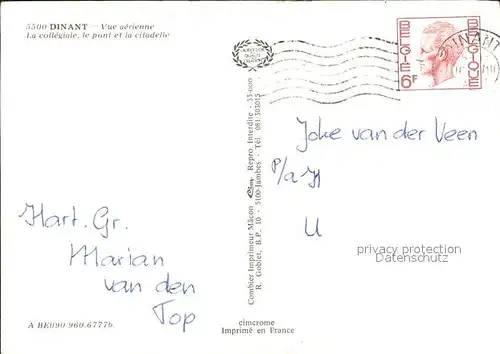 5500 DINANT — Vue aérienne
La collégiale, le pont et la citadelle
BELGIE
BELGIQUE
6F
DINANT
Joke van der Veen
P/a H
U
Hart. Gr.
Marian
van den
Top
Combier Imprimeur Mâcon Repro Interdite - 33-000
R. Goblet, B.P. 10 - 5100-Jambes - Tél. 081/303015
privacy protection
Datenschutz
A BE090 960.6777b
cimcrome
Imprimé en France